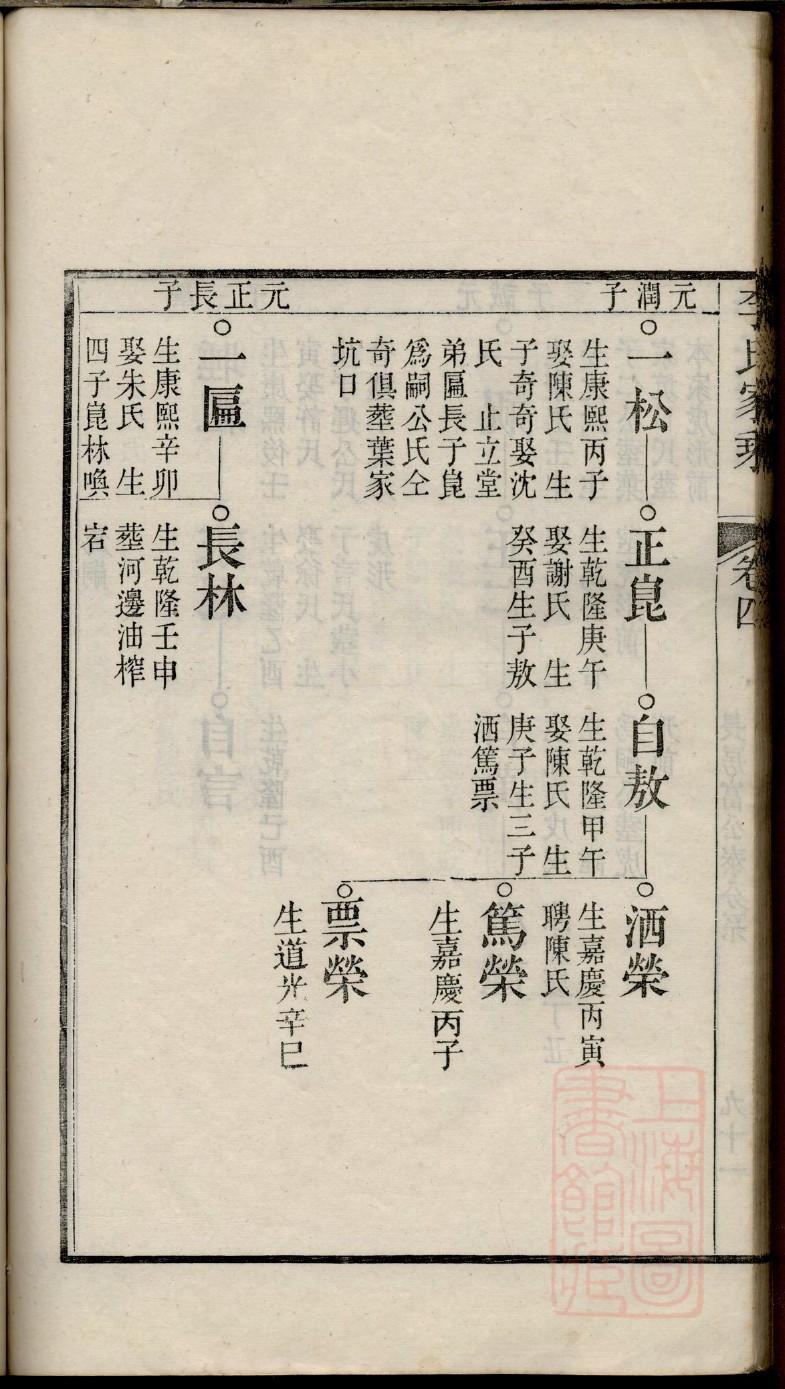 李氏家乘
卷四
元潤子
一松
生康熙丙子
娶陳氏生
子奇奇娶沈
氏止立堂
弟匾長子崑
爲嗣公氏仝
奇俱塟葉家
坑口
正崑
生乾隆庚午
娶謝氏生
癸酉生子敖
自敖
生乾隆甲午
娶陳氏生
庚子生三子
洒篤票
洒榮
生嘉慶丙寅
聘陳氏
篤榮
生嘉慶丙子
票榮
生道光辛巳
元正長子
一匾
生康熙辛卯
娶朱氏生
四子崑林喚
宕
長林
生乾隆壬申
塟河邊油榨
上海圖
書館藏